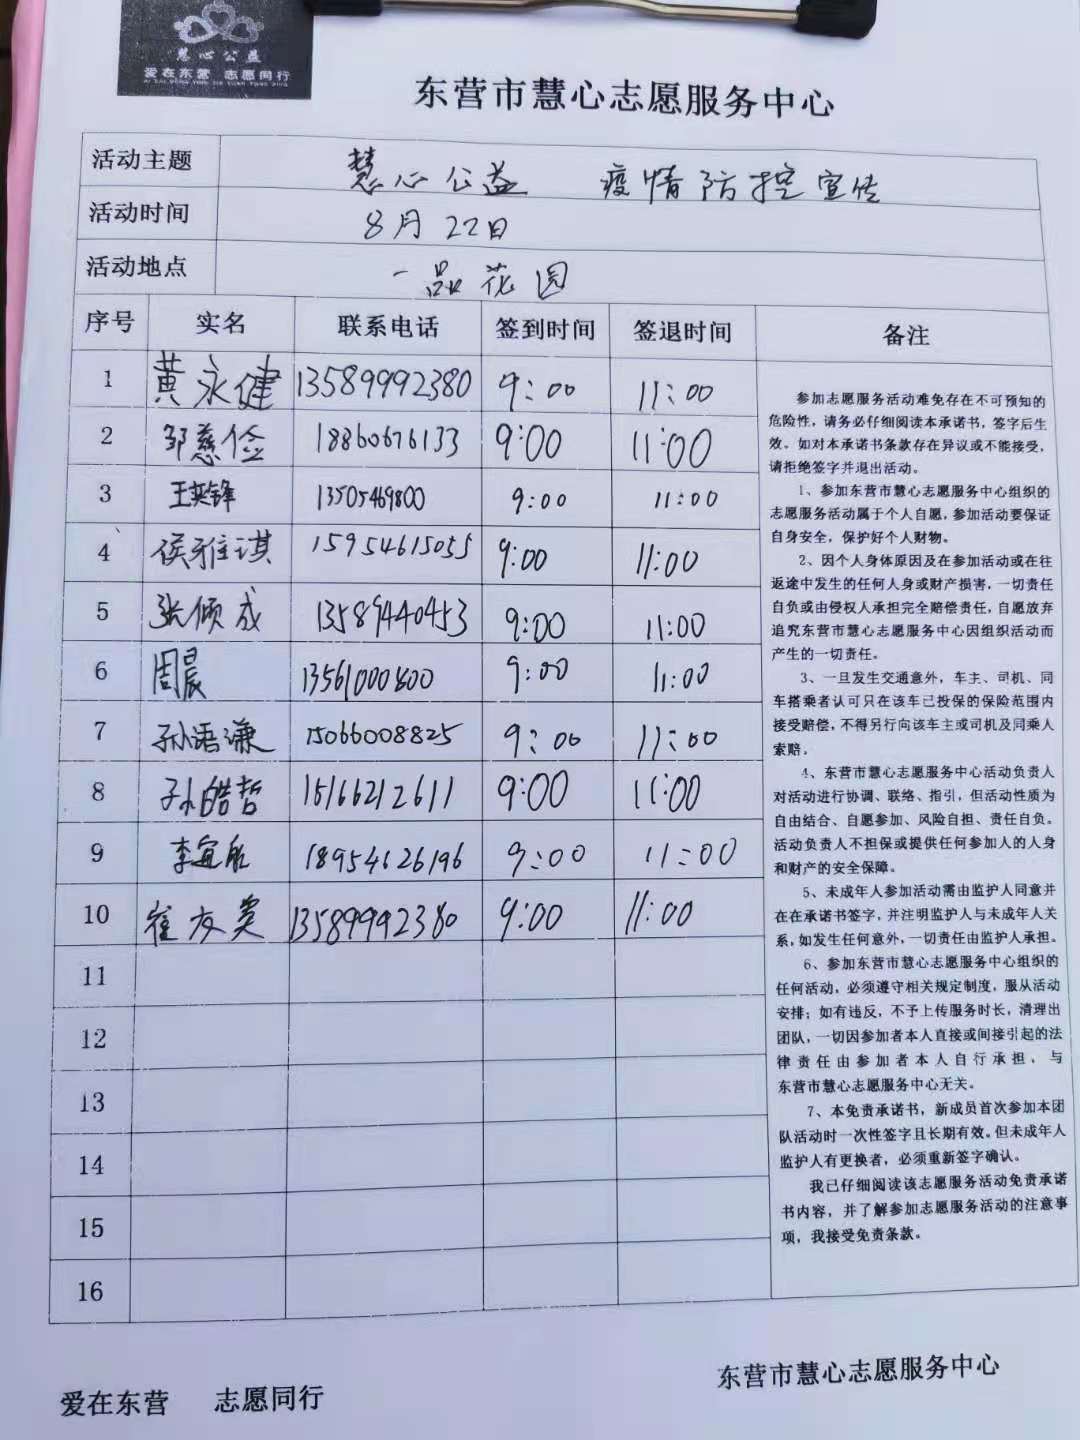 慧心公益
爱在东营 志愿同行
东营市慧心志愿服务中心
活动主题 慧心公益 疫情防控宣传
活动时间 8月22日
活动地点 一品花园
序号 实名 联系电话 签到时间 签退时间 备注
1 黄永健 13589992380 9:00 11:00
2 邹慈俭 18860676133 9:00 11:00
3 王英锋 13505469800 9:00 11:00
4 侯雅淇 15954615055 9:00 11:00
5 张倾成 13589440453 9:00 11:00
6 周晨 13561000800 9:00 11:00
7 孙语谦 15066008825 9:00 11:00
8 孙皓哲 15166212611 9:00 11:00
9 李宜 18954626196 9:00 11:00
10 崔友美 13589992380 9:00 11:00
11
12
13
14
15
16
参加志愿服务活动难免存在不可预知的
危险性，请务必仔细阅读本承诺书，签字后生
效。如对本承诺书条款存在异议或不能接受，
请拒绝签字并退出活动。
1、参加东营市慧心志愿服务中心组织的
志愿服务活动属于个人自愿，参加活动要保证
自身安全，保护好个人财物。
2、因个人身体原因及在参加活动或在往
返途中发生的任何人身或财产损害，一切责任
自负或由侵权人承担完全赔偿责任，自愿放弃
追究东营市慧心志愿服务中心因组织活动而
产生的一切责任。
3、一旦发生交通意外，车主、司机、同
车搭乘者认可只在该车已投保的保险范围内
接受赔偿，不得另行向该车主或司机及同乘人
索赔。
4、东营市慧心志愿服务中心活动负责人
对活动进行协调、联络、指引，但活动性质为
自由结合、自愿参加、风险自担、责任自负。
活动负责人不担保或提供任何参加人的人身
和财产的安全保障。
5、未成年人参加活动需由监护人同意并
在在承诺书签字，并注明监护人与未成年人关
系，如发生任何意外，一切责任由监护人承担。
6、参加东营市慧心志愿服务中心组织的
任何活动，必须遵守相关规定制度，服从活动
安排；如有违反，不予上传服务时长，清理出
团队，一切因参加者本人直接或间接引起的法
律责任由参加者本人自行承担，与
东营市慧心志愿服务中心无关。
7、本免责承诺书，新成员首次参加本团
队活动时一次性签字且长期有效。但未成年人
监护人有更换者，必须重新签字确认。
我已仔细阅读该志愿服务活动免责承诺
书内容，并了解参加志愿服务活动的注意事
项，我接受免责条款。
东营市慧心志愿服务中心
爱在东营 志愿同行